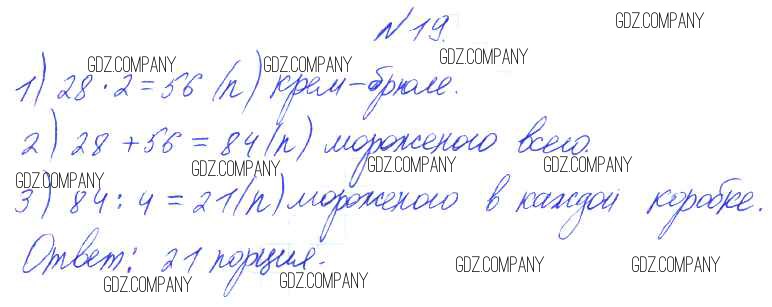 №19.
GDZ.COMPANY
GDZ.COMPANY GDZ.COMPANY GDZ.COMPANY
1) 28·2=56 (п) крем-брюле.
2) 28+56=84(п) мороженого всего.
GDZ.COMPANY GDZ.COMPANY GDZ.COMPANY GDZ.COMPANY
3) 84:4=21(п) мороженого в каждой коробке.
Ответ: 21 порция.
GDZ.COMPANY GDZ.COMPANY GDZ.COMPANY GDZ.COMPANY